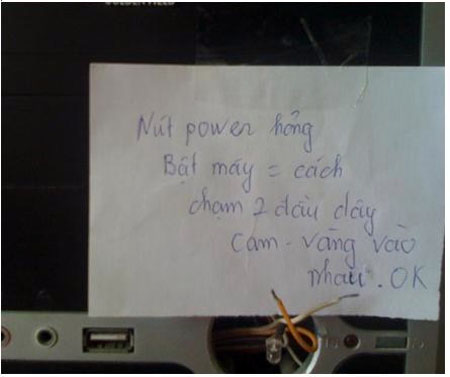 GOLDEN FIELD
Nút power hỏng
Bật máy = cách
chạm 2 đầu dây
cam - vàng vào
nhau. OK